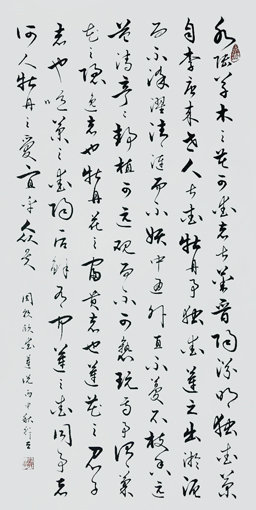 水陸草木之花可愛者甚蕃晉陶淵明獨愛菊
自李唐來世人甚愛牡丹予獨愛蓮之出淤泥
而不染濯清漣而不妖中通外直不蔓不枝香遠
益清亭亭靜植可遠觀而不可褻玩焉予謂菊
花之隱逸者也牡丹花之富貴者也蓮花之君子
者也噫菊之愛陶后鮮有聞蓮之愛同予者
何人牡丹之愛宜乎眾矣
周敦頤愛蓮說丙申秋